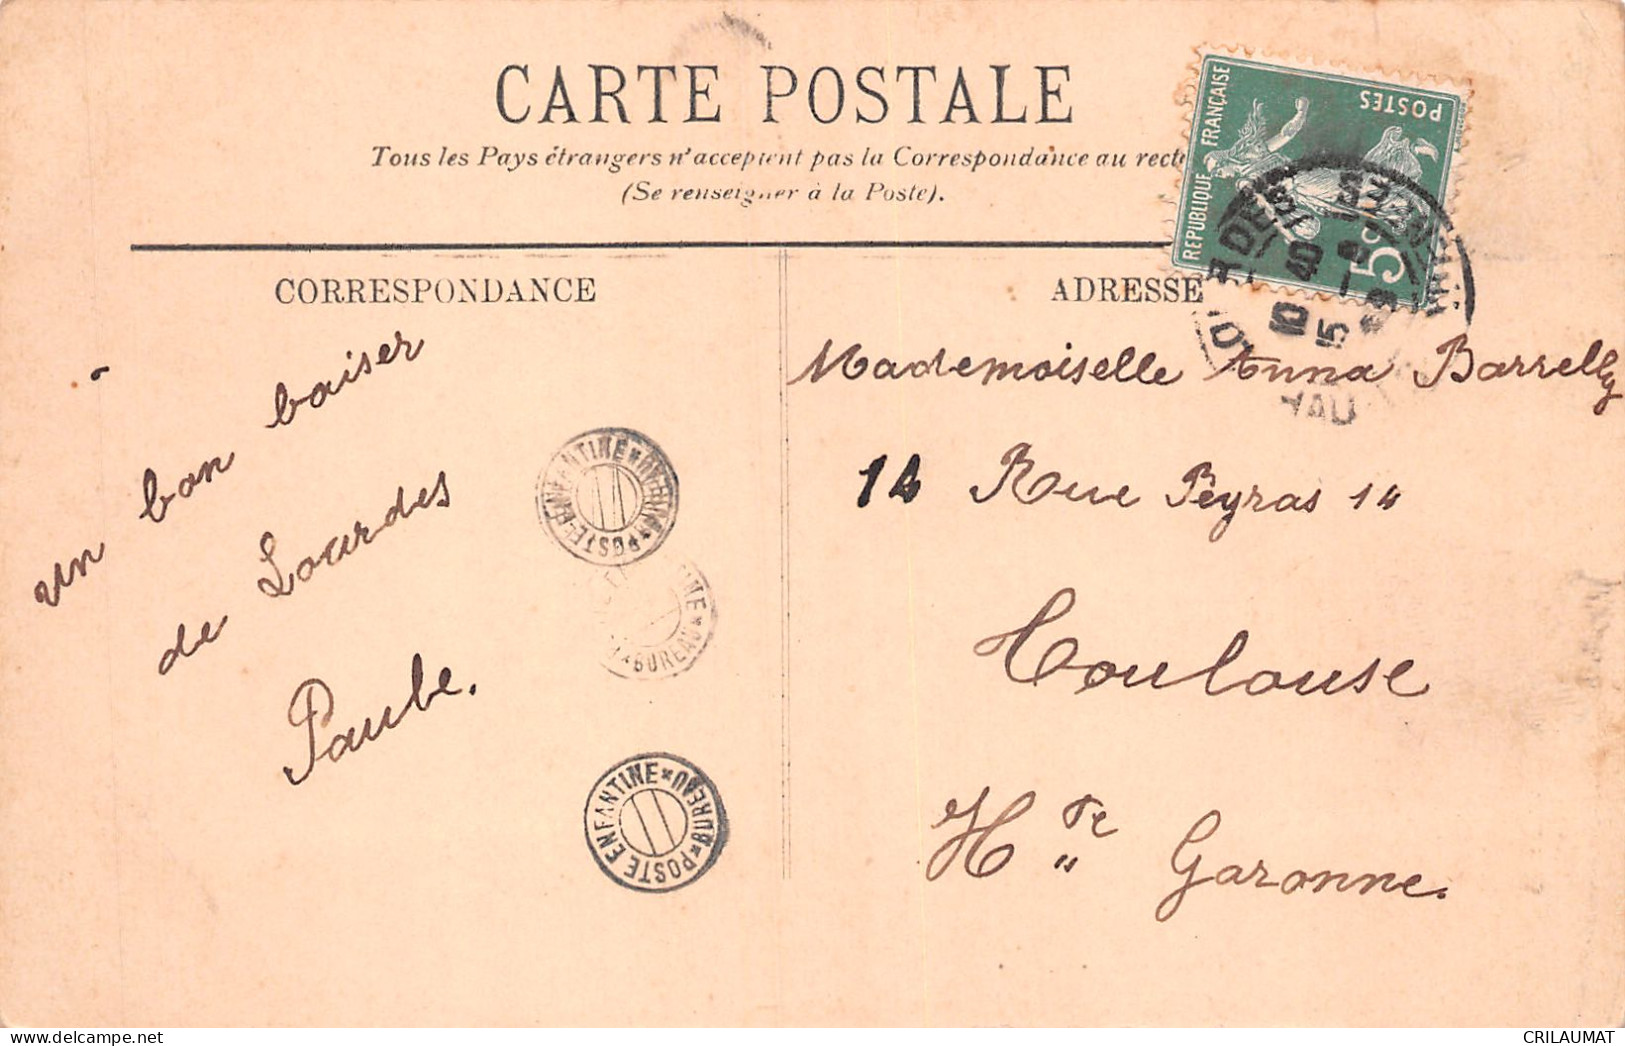 CARTE POSTALE
Tous les Pays étrangers n'acceptent pas la Correspondance au recto
(Se renseigner à la Poste).
REPUBLIQUE FRANÇAISE
POSTES
5c
LOURDES
10 40
15 - 9
CORRESPONDANCE
ADRESSE
un bon baiser
de Lourdes
Paule.
Mademoiselle Anna Barrelly
14 Rue Peyras 14
Toulouse
Hte Garonne.
POSTE ENFANTINE * BUREAU *
* BUREAU *
POSTE ENFANTINE * BUREAU *
CRILAUMAT